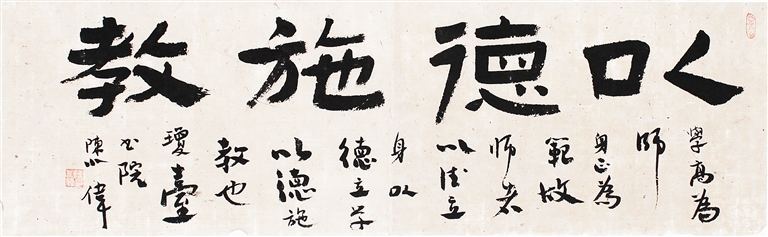 以德施教
學高為
師
身正為
範故
師者
以德立
身以
德立学
以德施
教也
瓊臺
书院
陳 偉